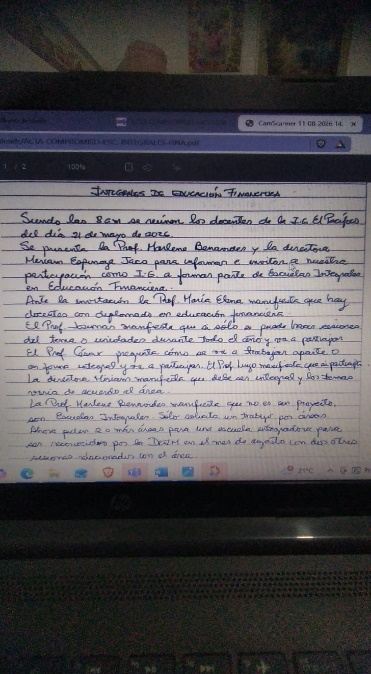 CamScanner 11-06-2026 14:
1 / 2
100%
INTEGRALES DE EDUCACIÓN FINANCIERA
Siendo las 8 am se reúnen los docentes de la I.E El Pacífico
del día 21 de mayo de 2026.
Se presenta la Prof. Marlene Benavides y la directora
Miriam Espinoza Jaco para informar e invitar a nuestra
participación como I.E. a formar parte de Escuelas Integrales
en Educación Financiera.
Ante la invitación la Prof. María Elena manifiesta que hay
docentes con diplomado en educación financiera
El Prof. manifiesta que a sólo se puede hacer sesiones
del tema o unidades durante todo el año y va a participar
El Prof. César pregunta cómo se va a trabajar aparte o
en forma integral y va a participar. El Prof. Lujo manifiesta que participa
La directora Miriam manifiesta que debe ser integral y los temas
varía de acuerdo al área.
La Prof. Marlene Benavides manifiesta que no es un proyecto,
son Escuelas Integrales. Solo un trabajo por áreas.
Ahora piden 2 o más áreas para una escuela integradora para
ser reconocidos por la en el mes de agosto con dos otres
sesiones relacionados con el área.
21°C